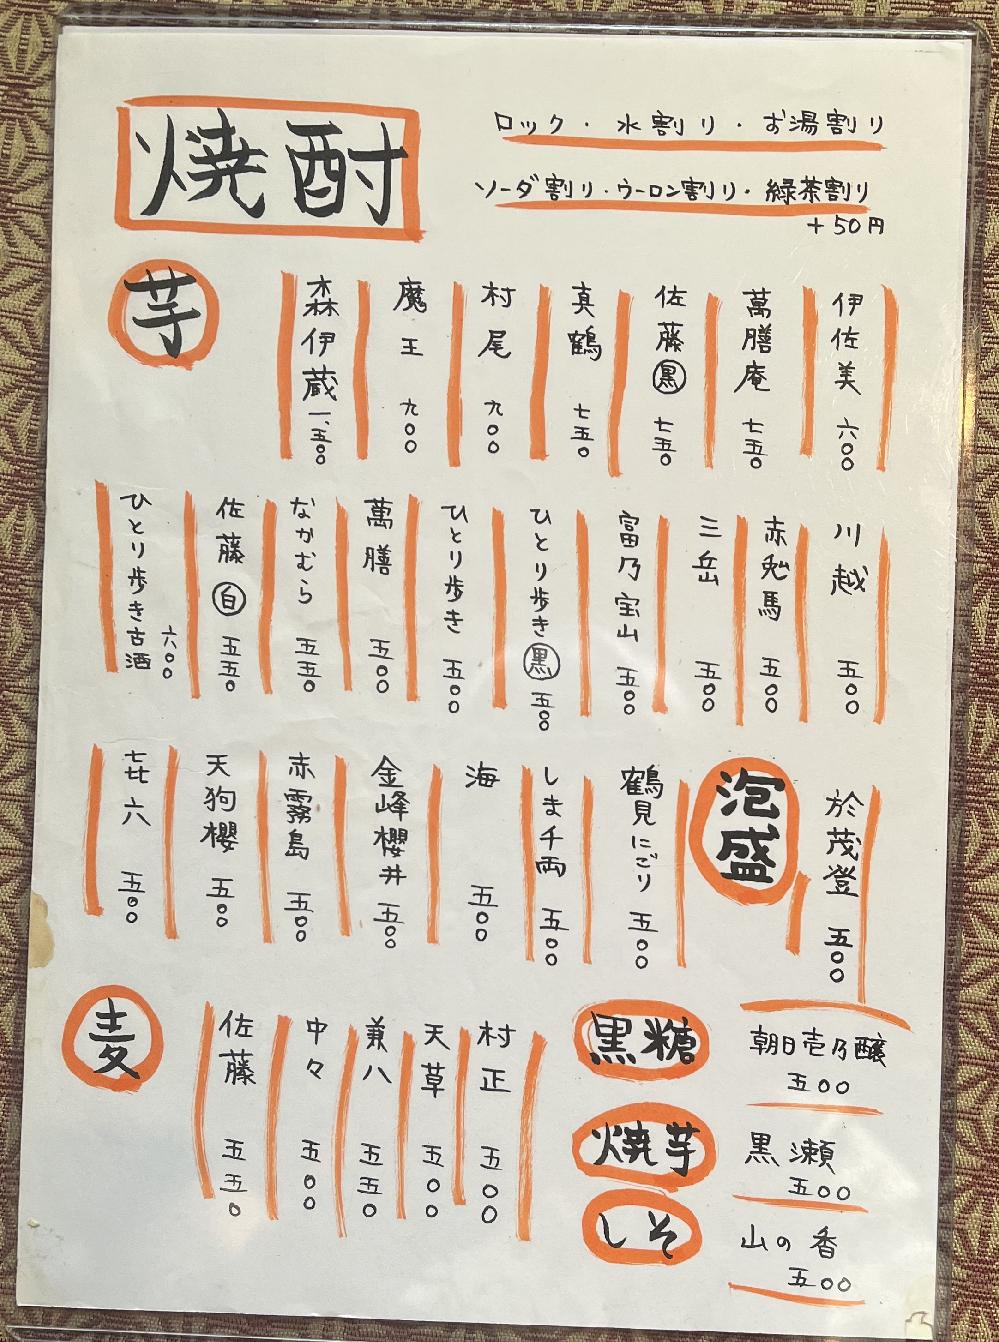 焼酎
ロック・水割り・お湯割り
ソーダ割り・ウーロン割り・緑茶割り
+50円
芋
伊佐美 六〇〇
萬膳庵 七五〇
佐藤 黒 七五〇
真鶴 七五〇
村尾 九〇〇
魔王 九〇〇
森伊蔵 一、五〇〇
川越 五〇〇
赤兎馬 五〇〇
三岳 五〇〇
富乃宝山 五〇〇
ひとり歩き 黒 五〇〇
ひとり歩き 五〇〇
萬膳 五〇〇
なかむら 五五〇
佐藤 白 五五〇
ひとり歩き古酒 六〇〇
鶴見にごり 五〇〇
しま千両 五〇〇
海 五〇〇
金峰櫻井 五〇〇
赤霧島 五〇〇
天狗櫻 五〇〇
㐂六 五〇〇
泡盛
於茂登 五〇〇
麦
村正 五〇〇
天草 五〇〇
兼八 五五〇
中々 五〇〇
佐藤 五五〇
黒糖
朝日壱乃醸
五〇〇
焼芋
黒瀬
五〇〇
しそ
山の香
五〇〇